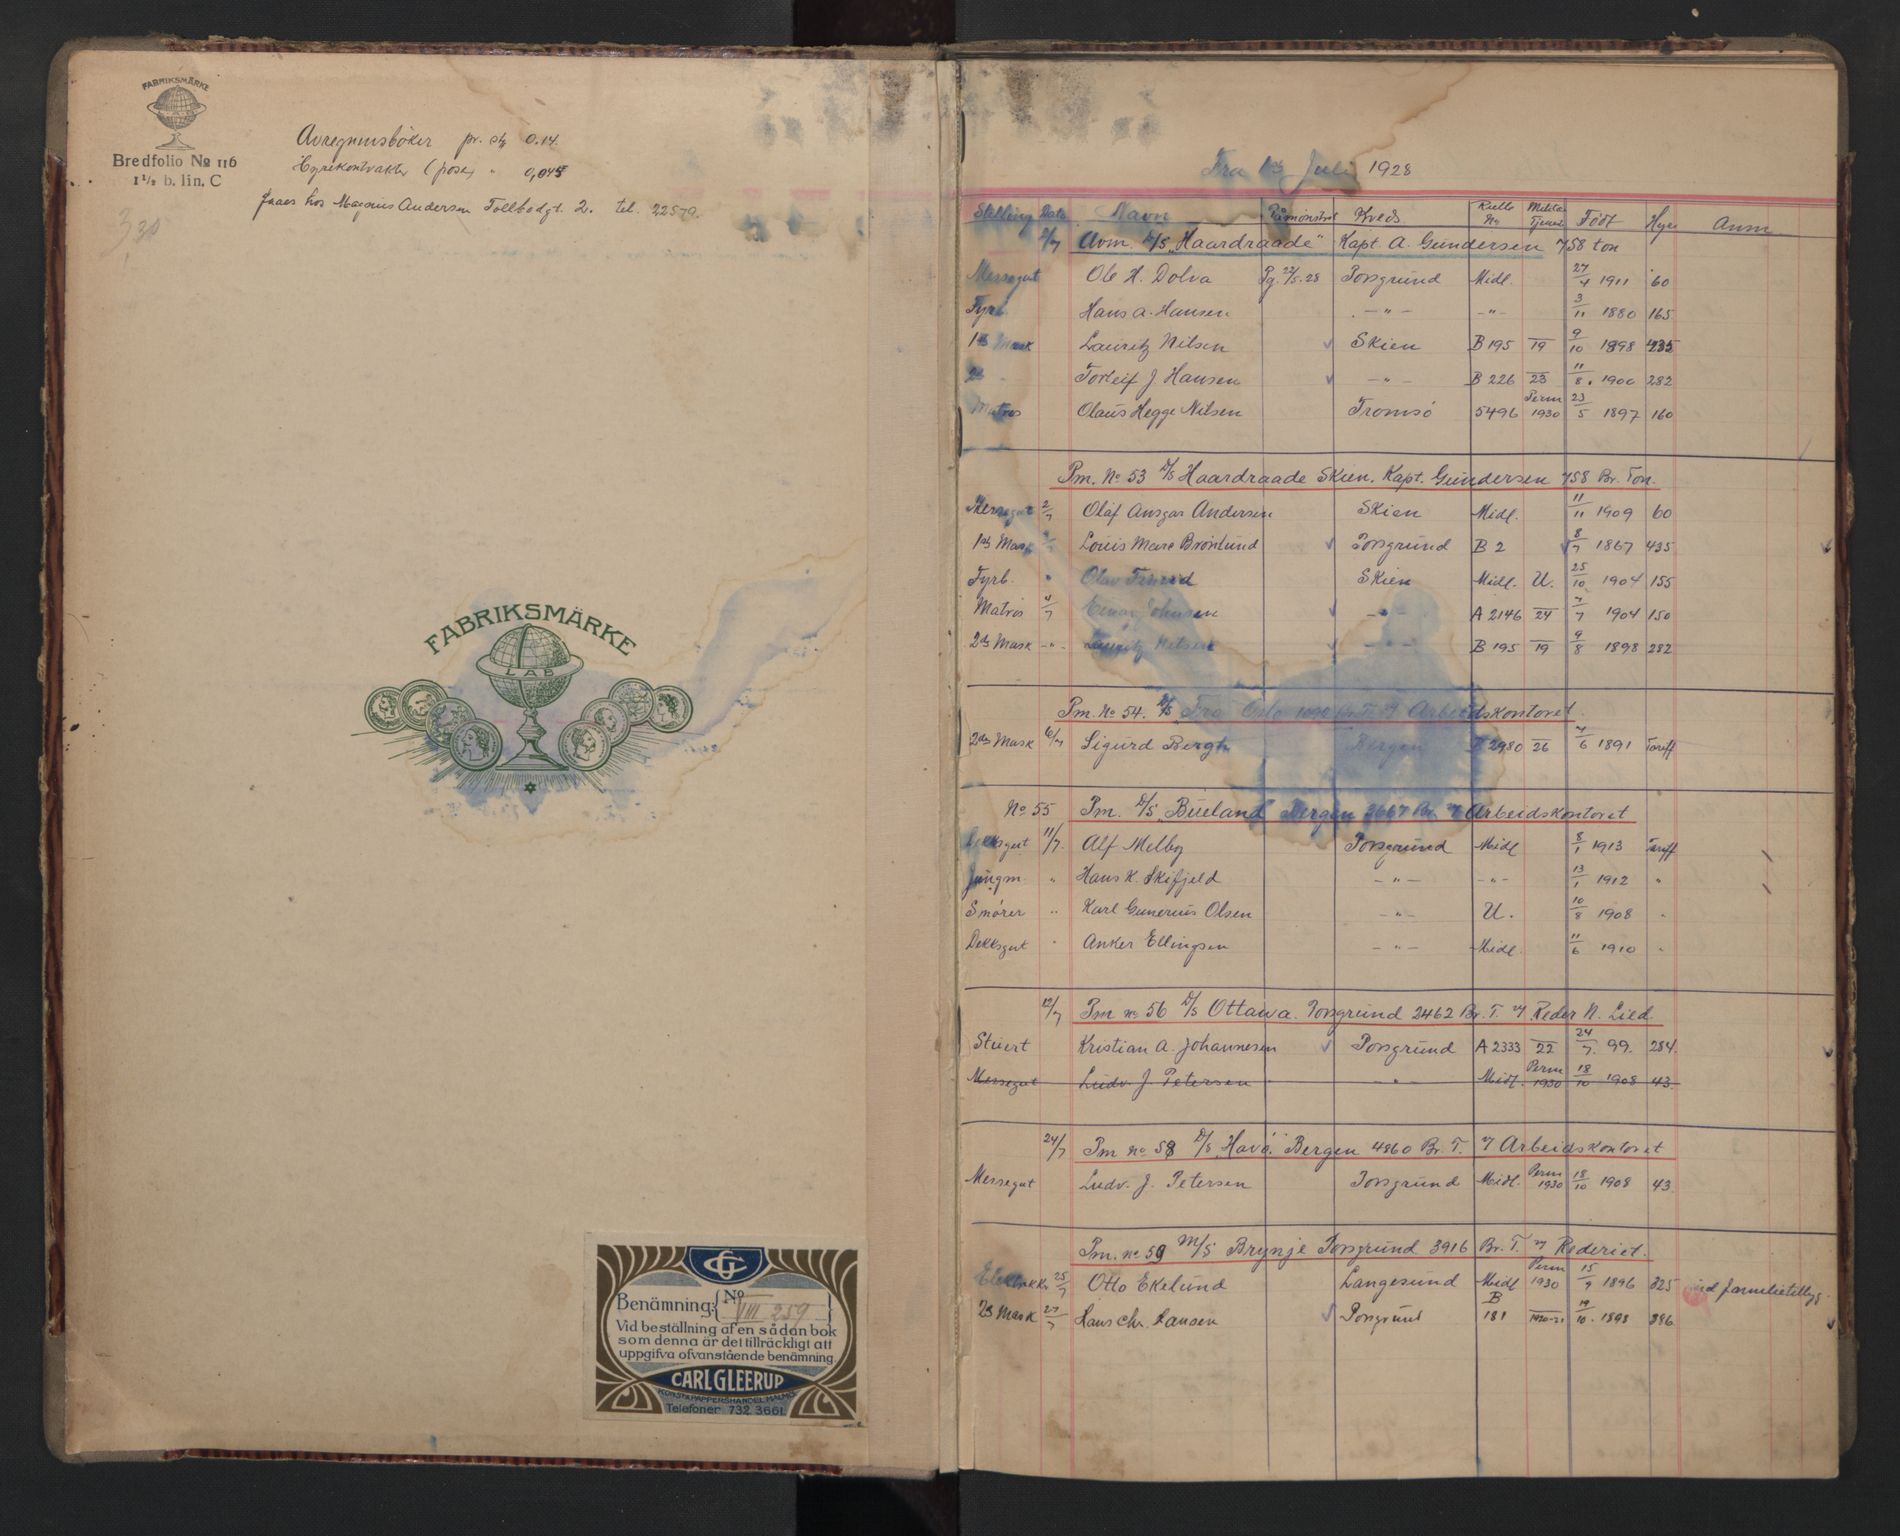 FABRIKSMÄRKE
Bredfolio No 116
1 1/2 b. lin. C
Avregninsbøker pr. stk 0.14.
Hyrekontrakter (pose) " 0,045
faaes hos Magnus Andersen Tollbodgt. 2. tel. 22579.
FABRIKSMÄRKE
LAB
CG
Benämning: No VIII 259
Vid beställning af en sådan bok
som denna är det tillräckligt att
uppgifva ofvanstående benämning.
CARL GLEERUP
KONST & PAPPERSHANDEL MALMÖ
Telefoner 732, 3661.
Fra 1ste Juli 1928
Stilling Dato Navn Påmönstret Kreds Rulle No Militær Tjeneste Födt Hyre Anm
2/7 Avm. D/S "Haardraade" Kapt A. Gundersen 758 ton
Messegut Ole H. Dolva Pg. 22/5.28 Porsgrund Midl. 27/4 1911 60
Fyrb. Hans A. Hansen - " - - " - 3/11 1880 165
1ste Mask Lauritz Nilsen Skien B 195 19 9/10 1898 435
2de Torleif J. Hansen - " - B 226 23 11/8. 1900 282
Matros Olaus Hegge Nilsen Tromsö 5496 Perm 1930 23/5 1897 160
Pm. No 53 D/S Haardraade Skien. Kapt. Gundersen 758 Br. Ton.
Messegut 2/7 Olaf Ansgar Andersen Skien Midl. 11/11 1909 60
1ste Mask Louis Marc Brönlund Porsgrund B 2 8/7 1867 435
Fyrb. " Olav Skien Midl. U. 25/10 1904 155
Matros 4/7 Einar Johnsen - " - A 2146 24 7/7 1904 150
2den Mask - " - Lauritz Nilsen - " - B 195 19 9/8 1898 282
Pm. No 54. D/S Fro Oslo 1090 Br. T. v/ Arbeidskontoret
2den Mask 6/7 Sigurd Bergh Bergen B 2980 26 7/6 1891 Tariff
No 55 Pm. D/S Bueland Bergen 3667 Br. v/ Arbeidskontoret
Dekksgut 11/7. Alf Melby Porsgrund Midl 8/1 1913 Tariff
Jungm. " Hans K. Skifjeld - " - - " - 13/1 1912 "
Smörer " Karl Gunerius Olsen - " - U. 10/8 1908 "
Dekksgut " Anker Ellingsen - " - Midl. 11/6 1910 "
12/7 Pm No 56 D/S Ottawa. Porsgrund 2462 Br. T. v/ Reder N. Lied.
Stuert Kristian A. Johannesen Porsgrund A 2333 22 24/7. 99. 284.
Messegut Ludv. J. Petersen - " - Midl. Perm 1930 18/10 1908 43.
24/7 Pm No 58 D/S "Havö" Bergen 4860 Br. T. v/ Arbeidskontoret
Messegut Ludv. J. Petersen Porsgrund Midl. Perm 1930 18/10 1908 43.
Pm. No 59 M/S Brynje Porsgrund 3916 Br. T. v/ Rederiet.
25/7 Otto Ekelund Langesund Midl Perm 1930 15/9 1896 325 familietillg.
2de Mask 27/7 Hans Chr. Hansen Porsgrund B 181 1920-21 19/10. 1898 386